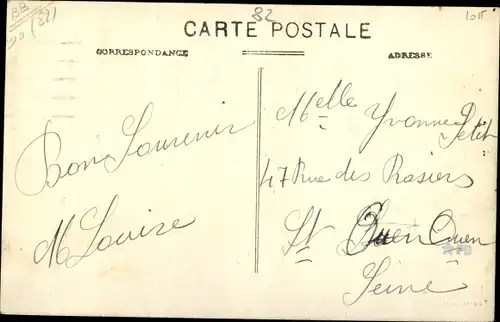 BB
(82)
82
1015
CARTE POSTALE
CORRESPONDANCE
ADRESSE
Bon Souvenir
M Louise
Melle Yvonne Petit
47 Rue des Rosiers
St Ouen Ouen
Seine